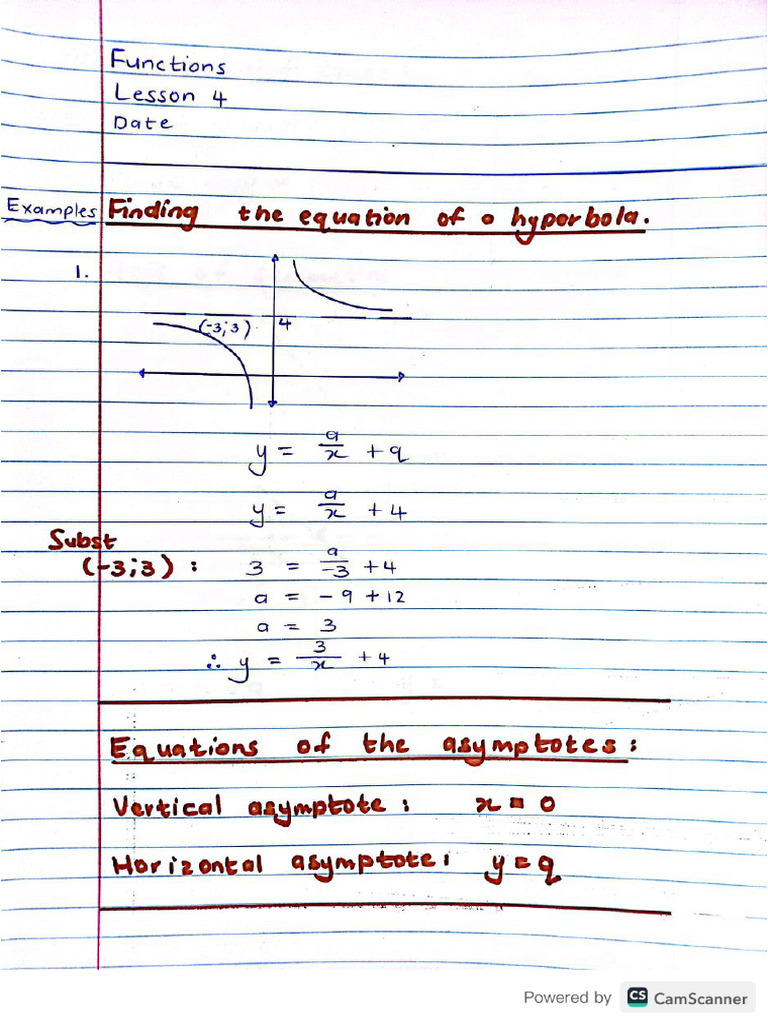 Functions
Lesson 4
Date
Examples Finding the equation of a hyperbola.
1.
(-3;3) 4
y = a/x + q
y = a/x + 4
Subst
(-3;3) : 3 = a/-3 + 4
a = -9 + 12
a = 3
∴ y = 3/x + 4
Equations of the asymptotes :
Vertical asymptote : x = 0
Horizontal asymptote : y = q
Powered by CS CamScanner